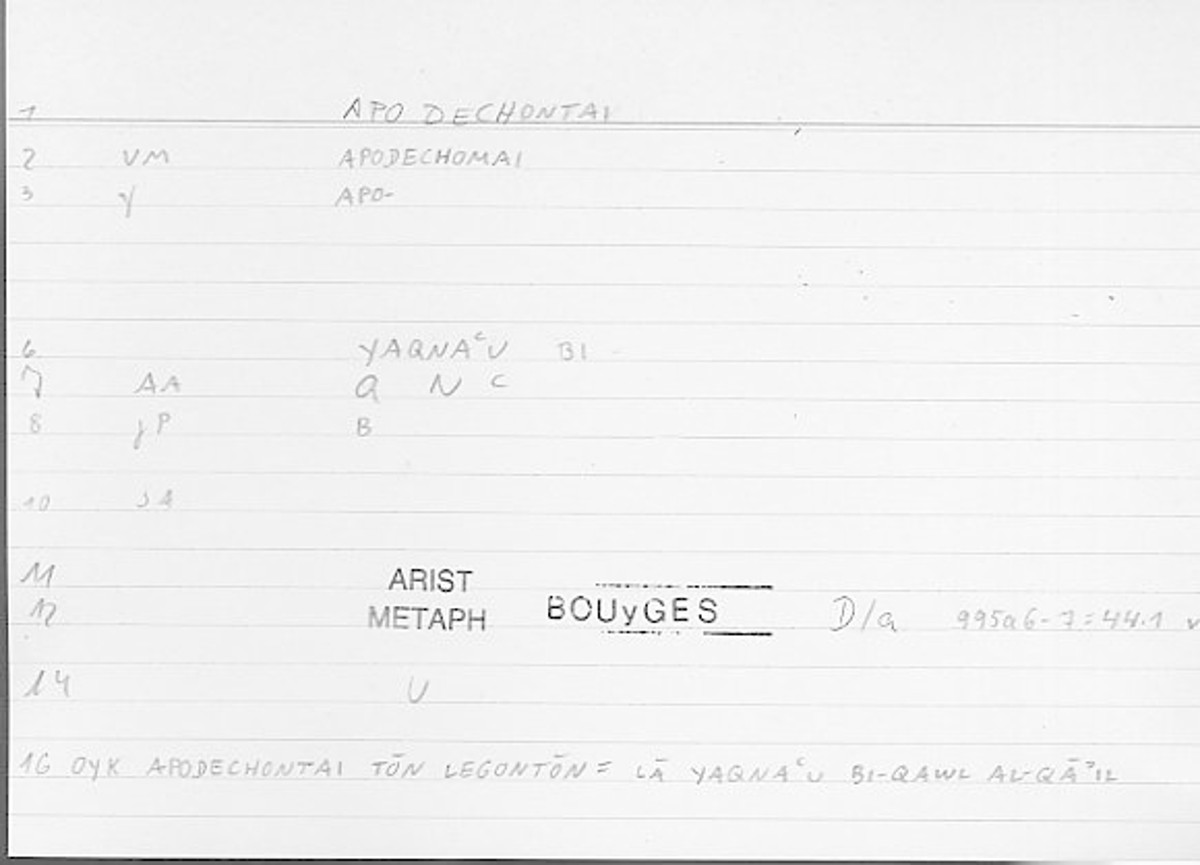 1 APO DECHONTAI
2 VM APODECHOMAI
3 γ APO-
6 YAQNAᶜU BI
7 AA Q N C
8 jP B
10 JA
11 ARIST
12 METAPH BOUyGES D/a 995a6-7=44.1
14 U
16 OYK APODECHONTAI TŌN LEGONTŌN = LĀ YAQNAᶜU BI-QAWL AL-QĀʾIL